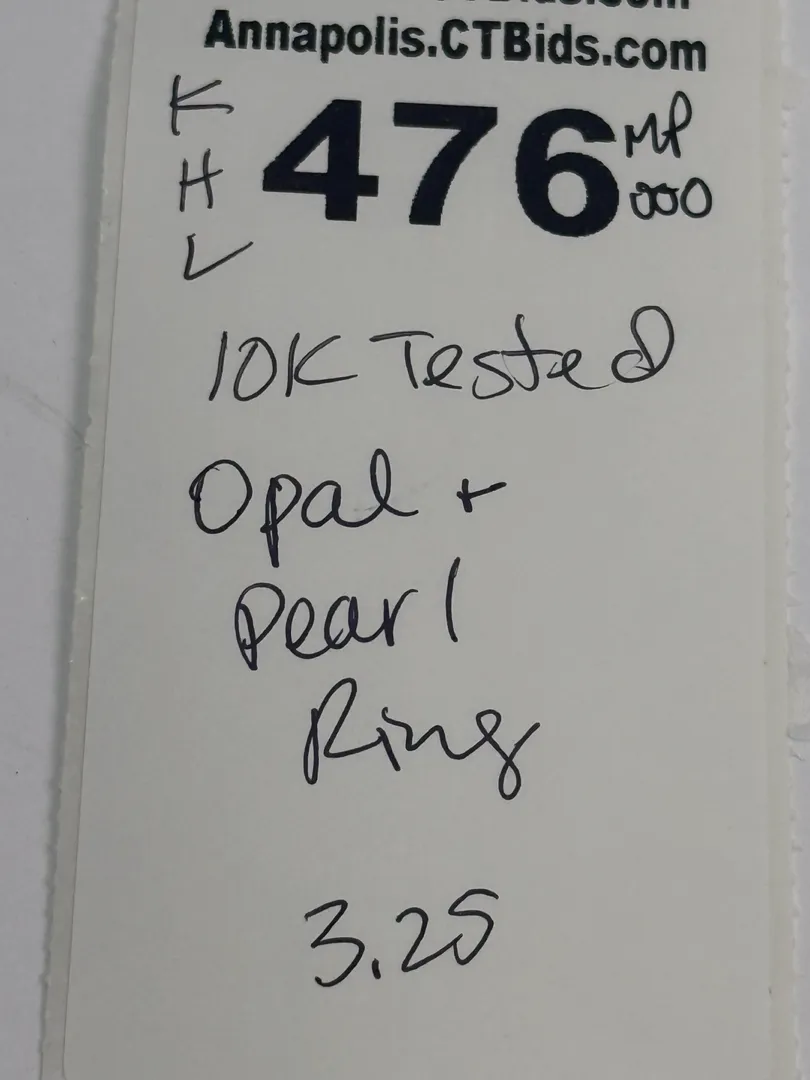 Annapolis.CTBids.com
K
H
L
476
MP
000
10K Tested
Opal +
Pearl
Ring
3.25